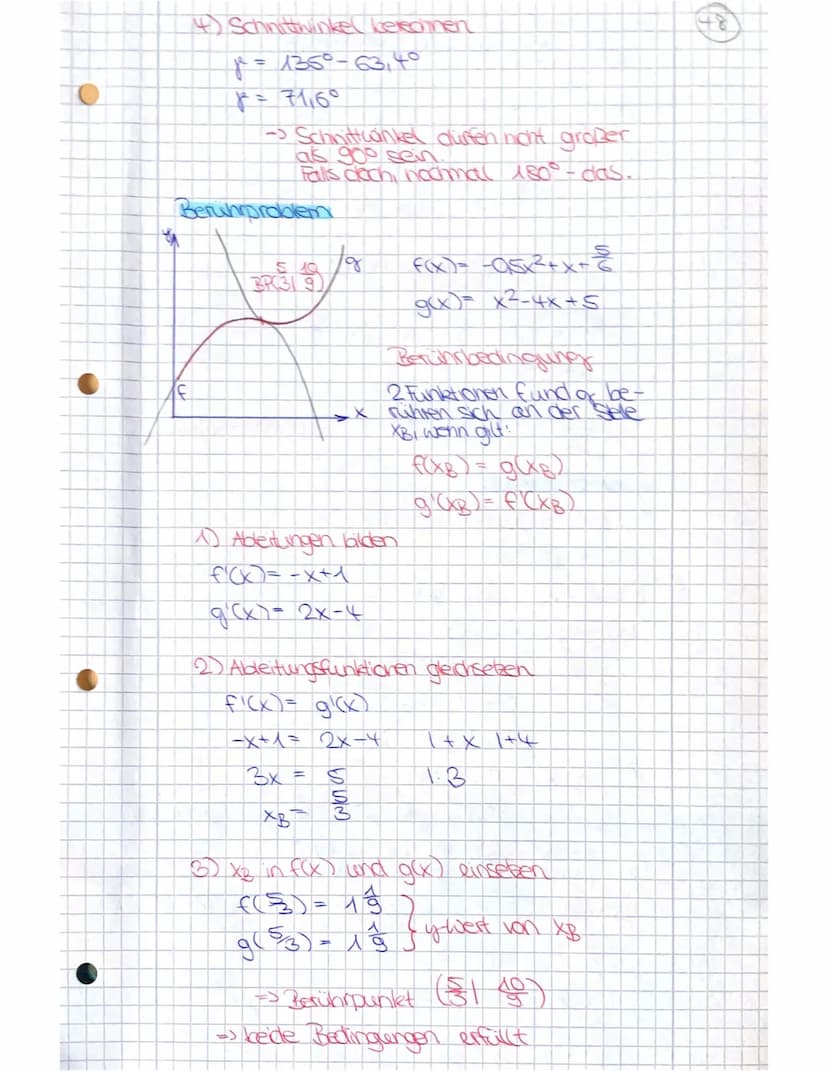 48
4) Schnittwinkel berechnen
γ = 135° - 63,4°
γ = 71,6°
-> Schnittwinkel dürfen nicht größer
als 90° sein.
Falls doch, nochmal 180° - das.
Berührproblem
y
BP(5/3 | 10/9)
g
f
x
f(x) = -0,5x² + x + 5/6
g(x) = x² - 4x + 5
Berührbedingung
2 Funktionen f und g be-
rühren sich an der Stelle
xB, wenn gilt:
f(xB) = g(xB)
g'(xB) = f'(xB)
1) Ableitungen bilden
f'(x) = -x+1
g'(x) = 2x-4
2) Ableitungsfunktionen gleichsetzen
f'(x) = g'(x)
-x+1 = 2x-4 |+x |+4
3x = 5 |:3
xB = 5/3
3) xB in f(x) und g(x) einsetzen
f(5/3) = 1 1/9
g(5/3) = 1 1/9 } y-Wert von xB
=> Berührpunkt (5/3 | 10/9)
=> beide Bedingungen erfüllt